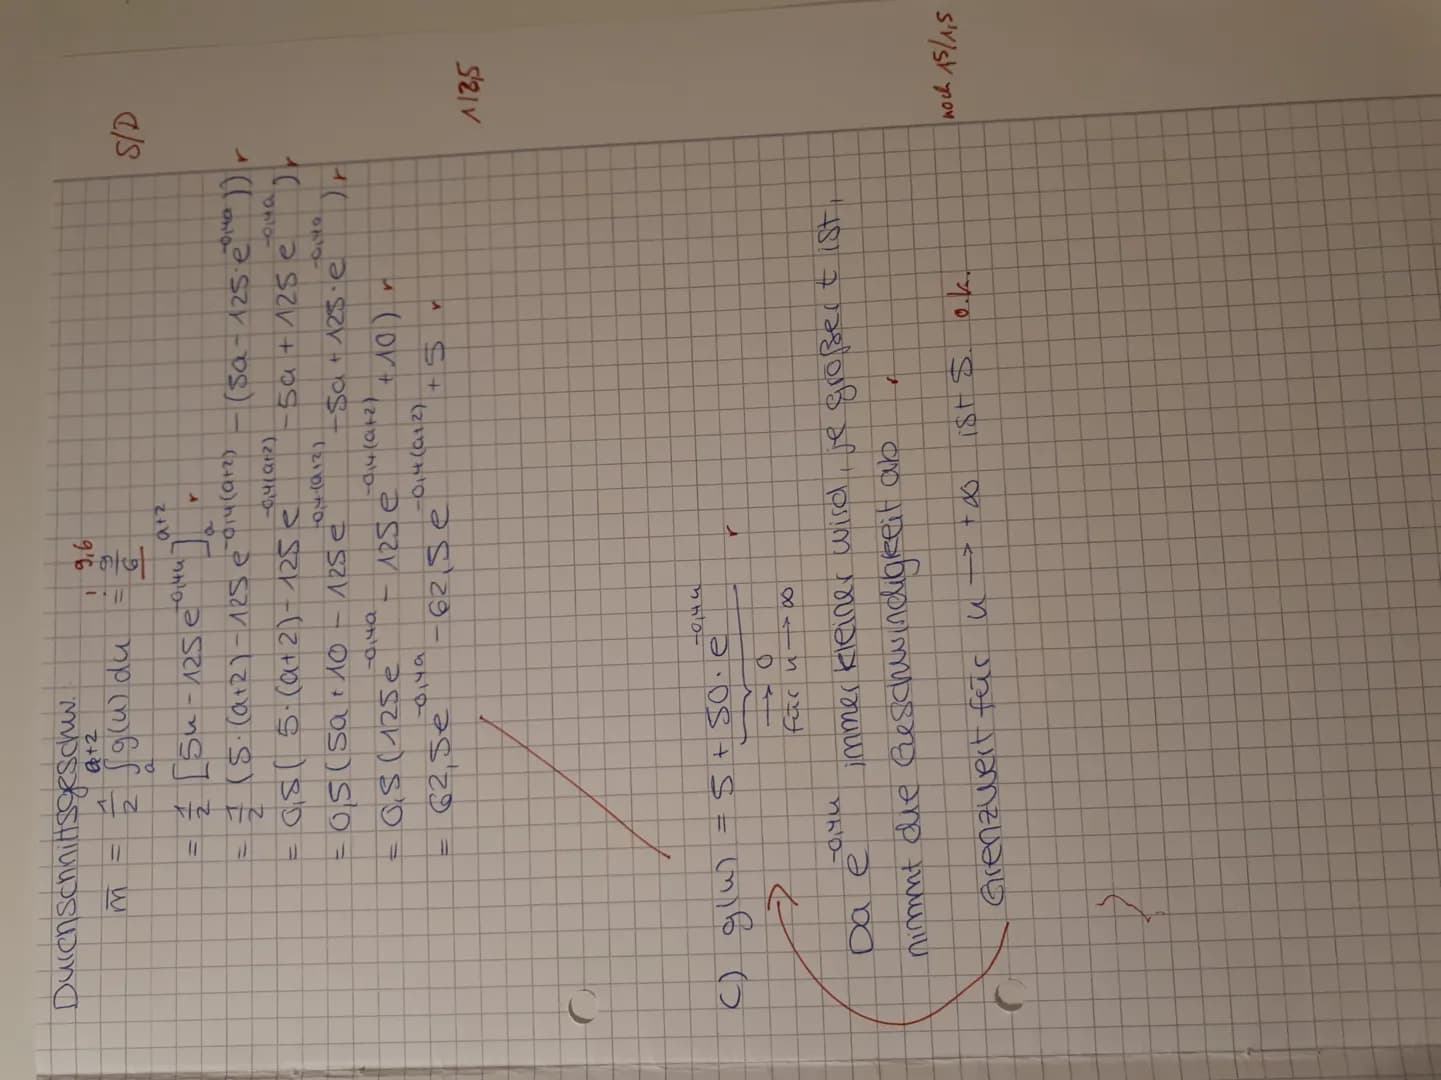 Durchschnittsgeschw.
S/D
m̅ = 1/2 ∫ₐᵃ⁺² g(u) du = 9/6
! 9,6
= 1/2 [5u - 125e^(-0,4u)]ₐᵃ⁺² r
= 1/2 (5·(a+2) - 125e^(-0,4(a+2)) - (5a - 125·e^(-0,4a))) r
= 0,5 (5·(a+2) - 125e^(-0,4(a+2)) - 5a + 125e^(-0,4a)) r
= 0,5 (5a + 10 - 125e^(-0,4(a+2)) - 5a + 125·e^(-0,4a)) r
= 0,5 (125e^(-0,4a) - 125e^(-0,4(a+2)) + 10) r
= 62,5e^(-0,4a) - 62,5e^(-0,4(a+2)) + 5 r
c) g(u) = 5 + 50·e^(-0,4u) r
→ 0
für u → ∞
Da e^(-0,4u) immer kleiner wird, je größer t ist,
nimmt die Geschwindigkeit ab r
Grenzwert für u → +∞ ist 5. o.k.